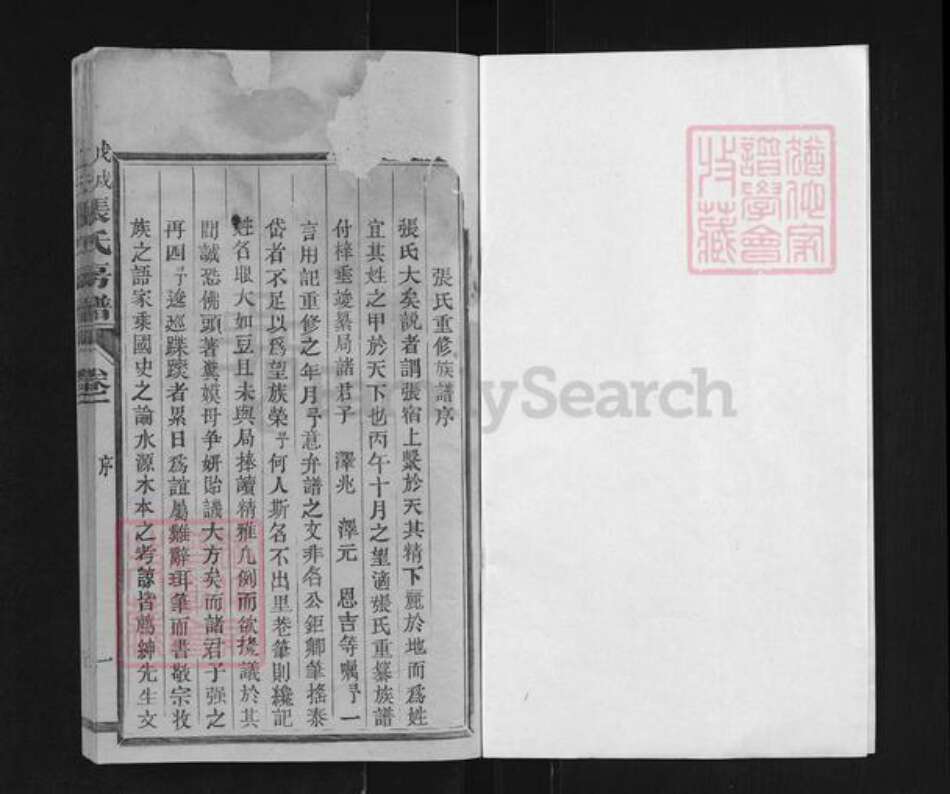 張氏重修族譜序
張氏大矣說者謂張宿上繫於天其精下麗於地而爲姓
宜其姓之甲於天下也丙午十月之望適張氏重纂族譜
付梓重竣纂局諸君子 澤兆 澤元 恩吉等囑予一
言用記重修之年月予意弁譜之文非名公鉅卿筆搖泰
岱者不足以爲望族榮予何人斯名不出里巷筆則纔記
姓名眼大如豆且未與局捧讀精雅凡例而欲擬議於其
間誠恐佛頭著糞嫫母爭妍貽譏大方矣而諸君子强之
再四予逡巡踧踖者累日爲誼屬難辭珥筆而書敬宗收
族之語家乘國史之論水源木本之考諒皆薦紳先生文
戊戌
張氏房譜
卷一
序
一
譜學會
收藏
FamilySearch